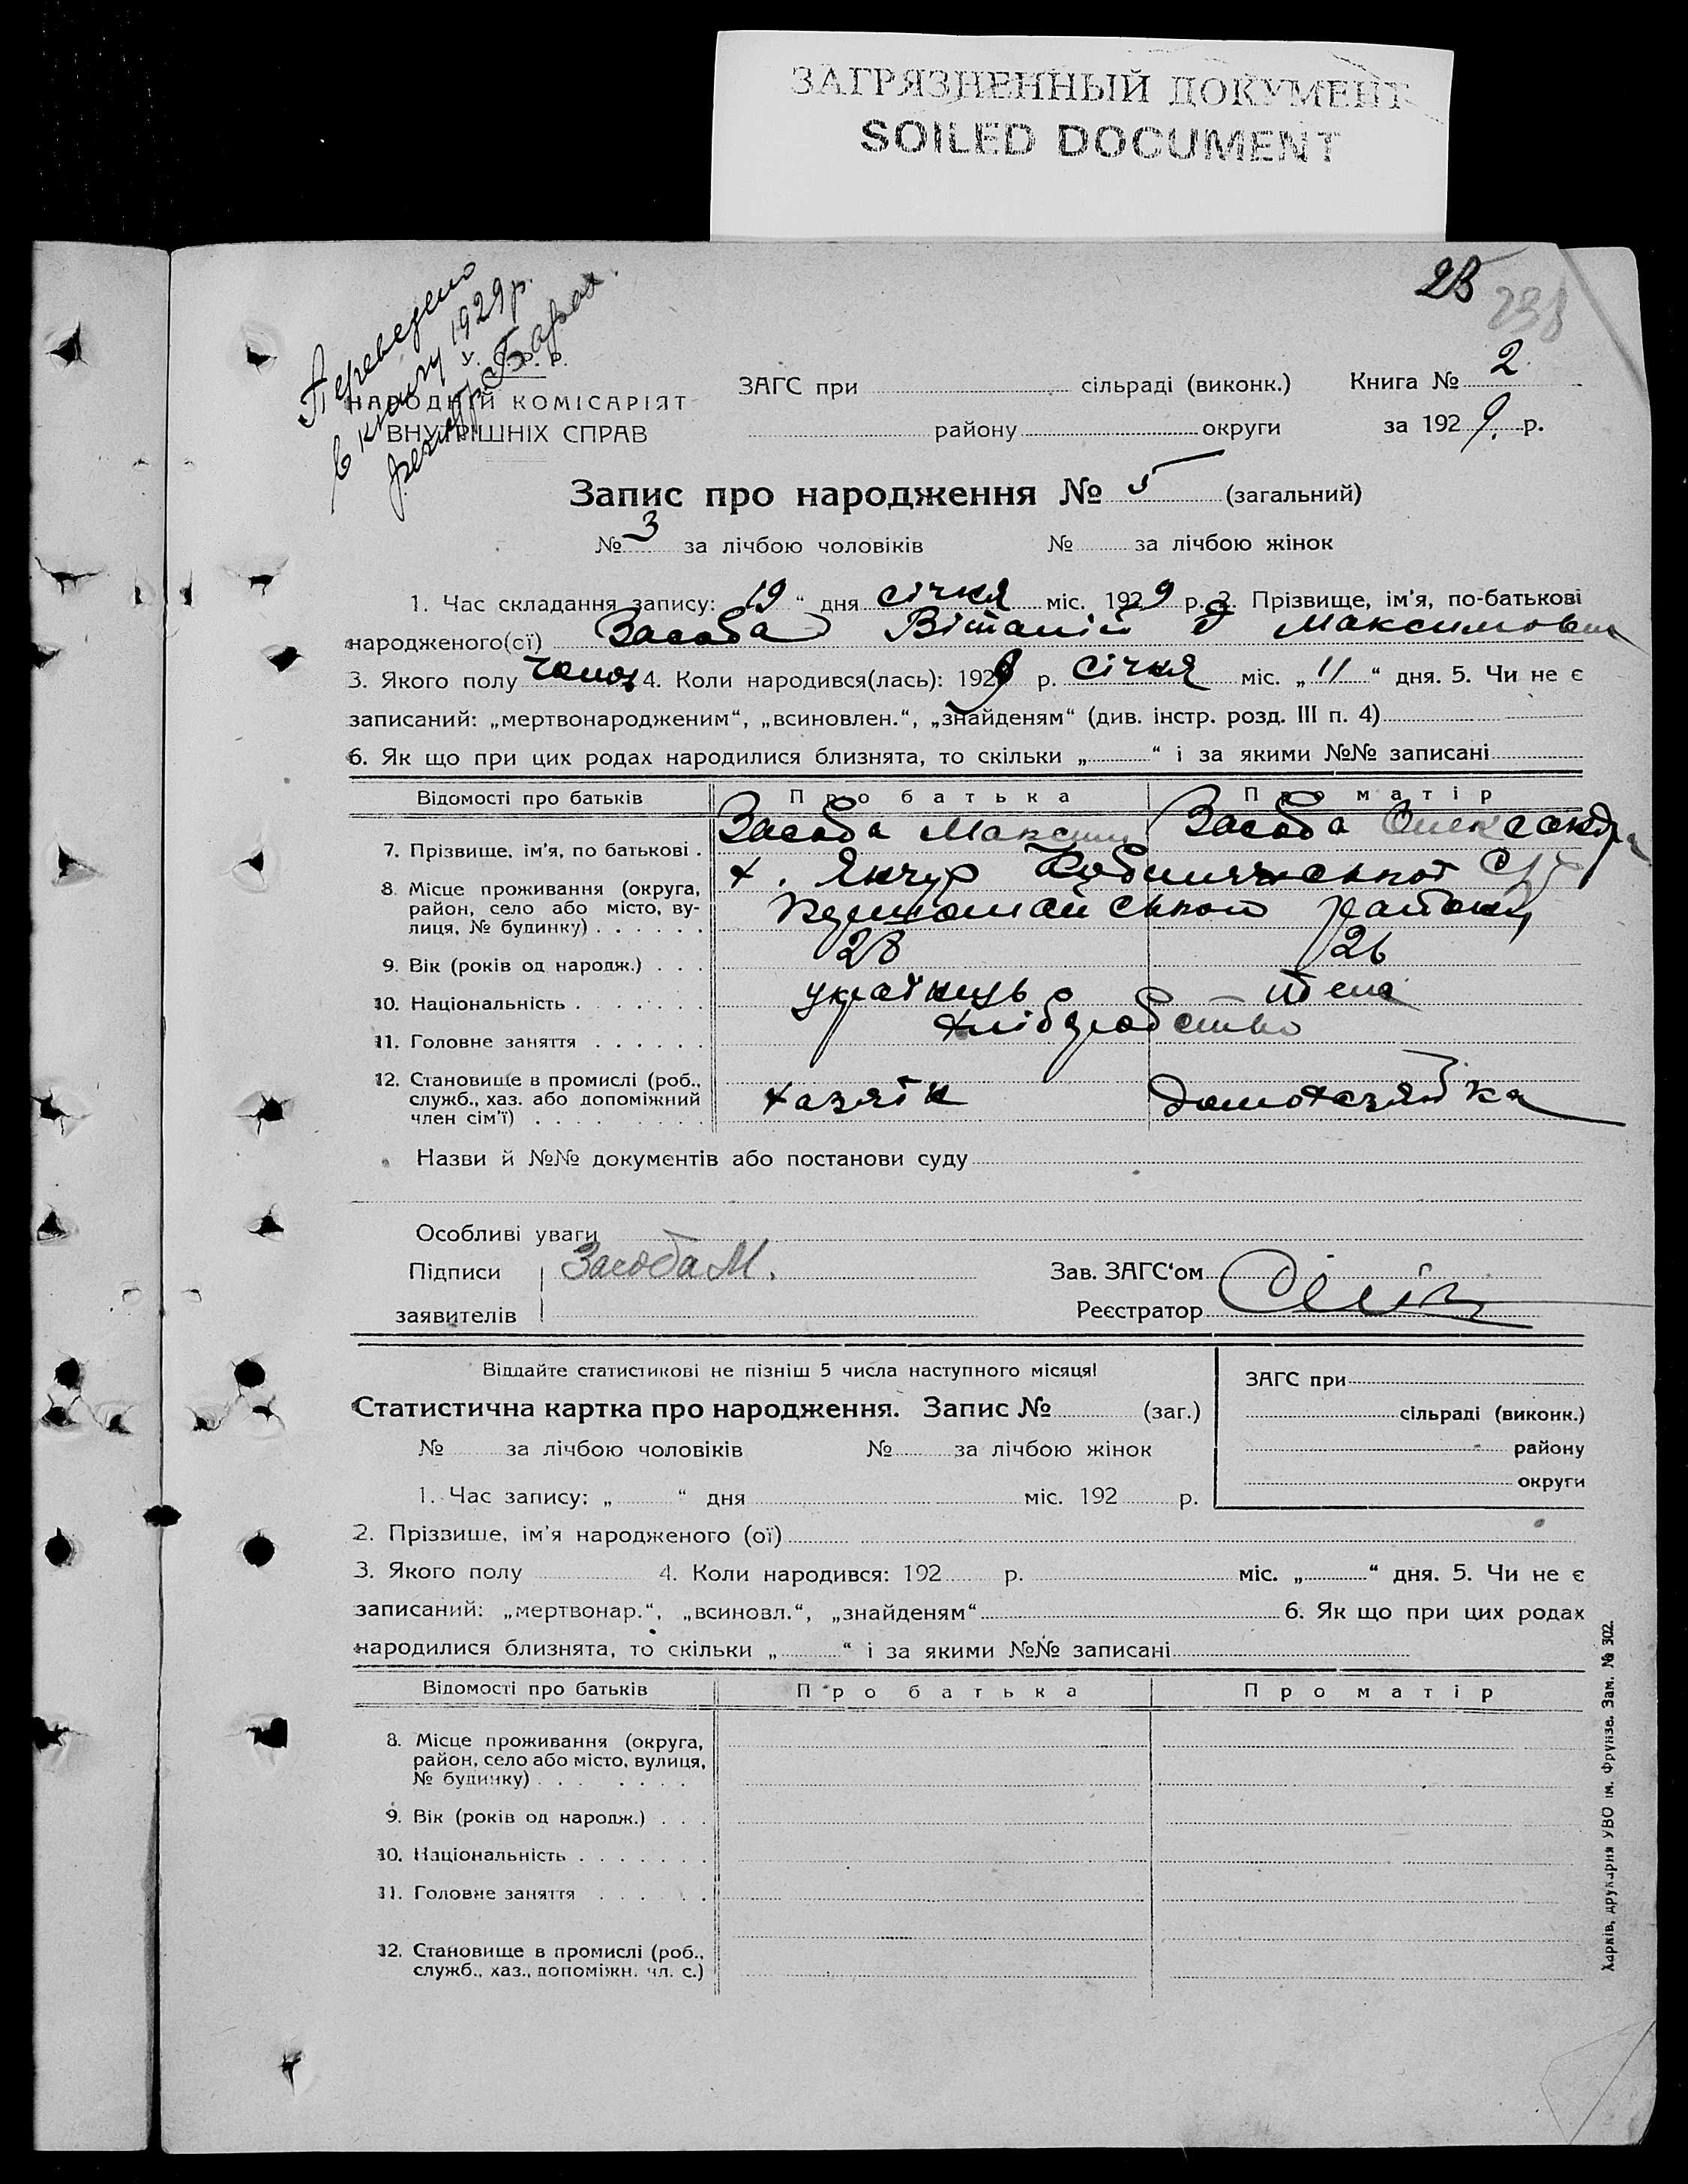 ЗАГРЯЗНЕННЫЙ ДОКУМЕНТ
SOILED DOCUMENT
25
238
Переведено
в книгу 1929 р.
У. С. Р. Р.
НАРОДНІЙ КОМІСАРІЯТ
ВНУТРІШНІХ СПРАВ
ЗАГС при сільраді (виконк.) Книга № 2
району округи за 1929 р.
Запис про народження № 5 (загальний)
№ 3 за лічбою чоловіків № за лічбою жінок
1. Час складання запису: 19 “ дня січня міс. 1929 р. 2. Прізвище, ім’я, по-батькові
народженого(сї) Засоба Віталій Максимович
3. Якого полу чолов 4. Коли народився(лась): 1929 р. Січня міс. „ 11 “ дня. 5. Чи не є
записаний: „мертвонародженим“, „всиновлен.“, „знайденям“ (див. інстр. розд. III п. 4)
6. Як що при цих родах народилися близнята, то скільки „ “ і за якими №№ записані
Відомості про батьків Про батька Про матір
7. Прізвище, ім’я, по батькові . Засоба Максим Засоба Олександра
8. Місце проживання (округа, х. Янчур
район, село або місто, ву- району
лиця, № будинку) . . . . . .
9. Вік (років од народж.) . . . 28 26
10. Національність . . . . . . . українець теж
11. Головне заняття . . . . . . хліборобство
12. Становище в промислі (роб.,
служб., хаз. або допоміжний хазяїн домохазяйка
член сім’ї) . . . . . . . .
Назви й №№ документів або постанови суду
Особливі уваги
Підписи Засоба М. Зав. ЗАГС‘ом
заявителів Реєстратор
Віддайте статистикові не пізніш 5 числа наступного місяця!
Статистична картка про народження. Запис № (заг.)
№ за лічбою чоловіків № за лічбою жінок
1. Час запису: „ “ дня міс. 192 р.
ЗАГС при
сільраді (виконк.)
району
округи
2. Прізвище, ім’я народженого (ої)
3. Якого полу 4. Коли народився: 192 р. міс. „ “ дня. 5. Чи не є
записаний: „мертвонар.“, „всиновл.“, „знайденям“ 6. Як що при цих родах
народилися близнята, то скільки „ “ і за якими №№ записані
Відомості про батьків Про батька Про матір
8. Місце проживання (округа,
район, село або місто, вулиця,
№ будинку) . . . . . . .
9. Вік (років од народж.) . . .
10. Національність . . . . . . .
11. Головне заняття . . . . . .
12. Становище в промислі (роб.,
служб., хаз., допоміжн. чл. с.)
Харків, друкарня УВО ім. Фрунзе. Зам. № 302.